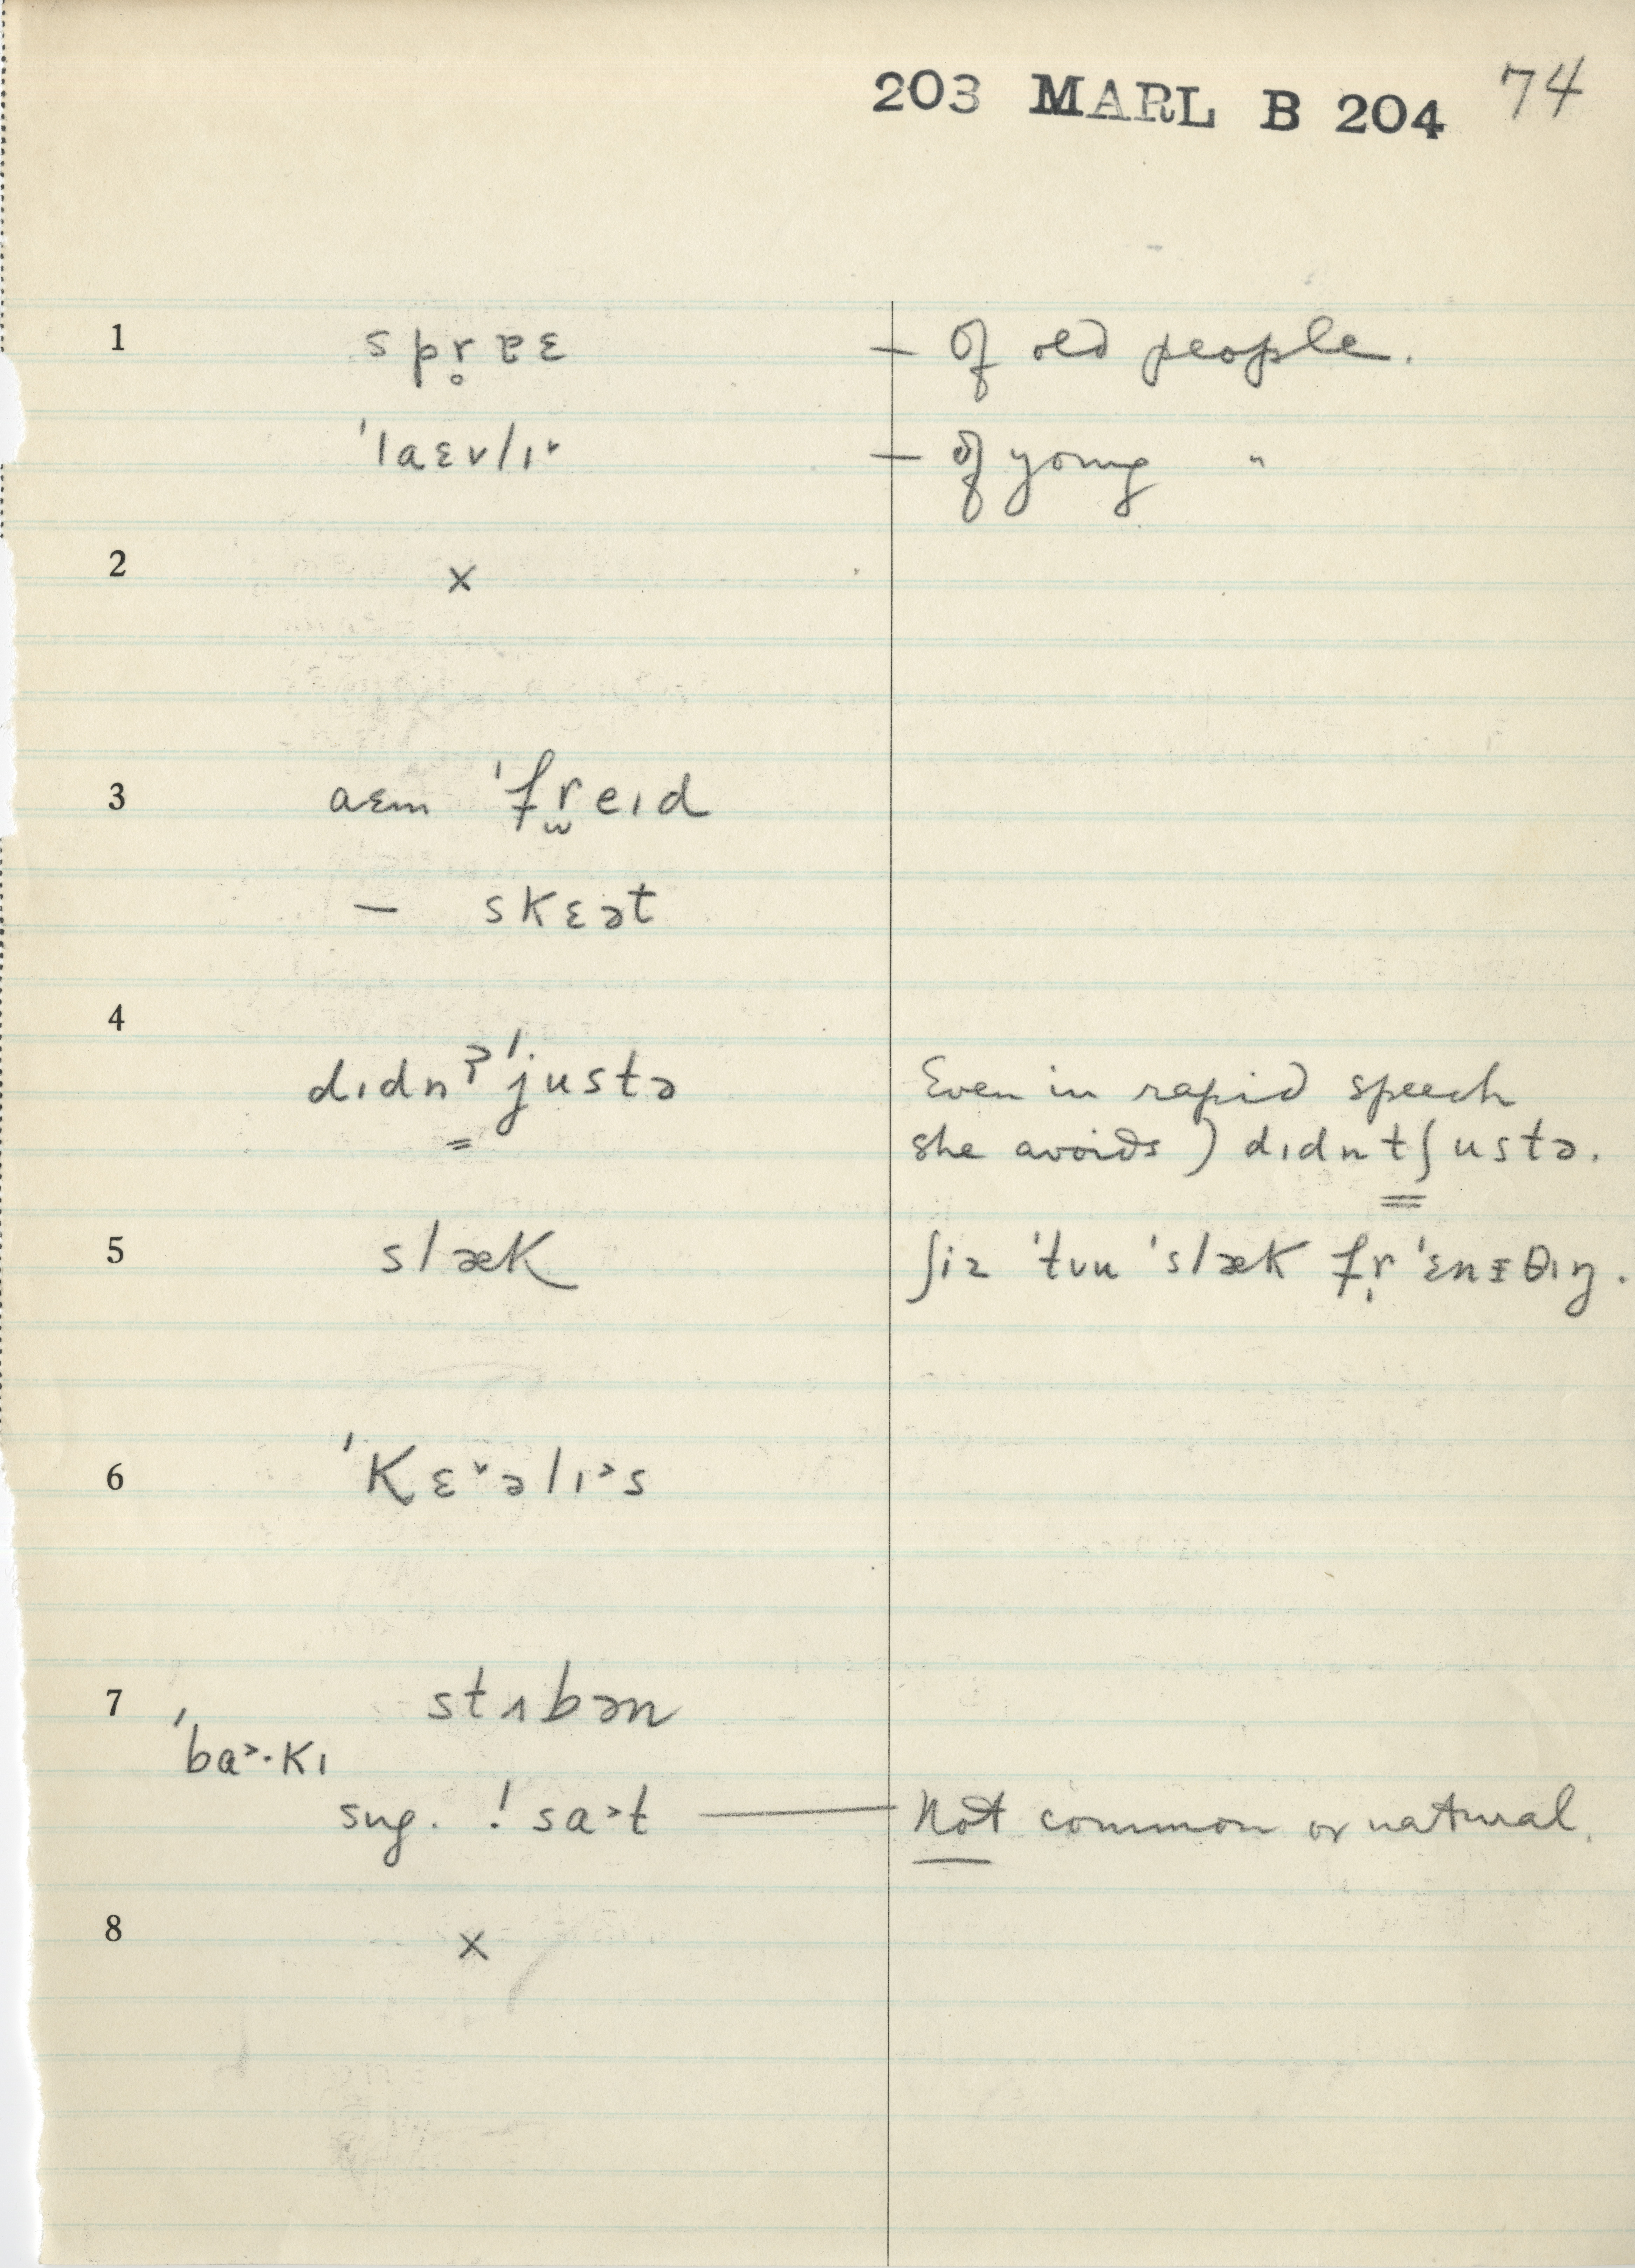 203 MARL B 204 74
1 spr̥ɐɛ — of old people.
ˈlaɛvlɪ˅ — of young "
2 ×
3 aɛm ˈfr̫eɪd
— skɛət
4 dɪdnˀˈjustə Even in rapid speech
she avoids ) dɪdntʃustə.
5 slæk ʃiz ˈtuu ˈslæk fr̩ ˈɛnɪθɪŋ.
6 ˈkɛ˅əlɪ˃s
7 stʌbən
ˈba˃·kɪ
sug. ! sa˃t — Not common or natural.
8 ×